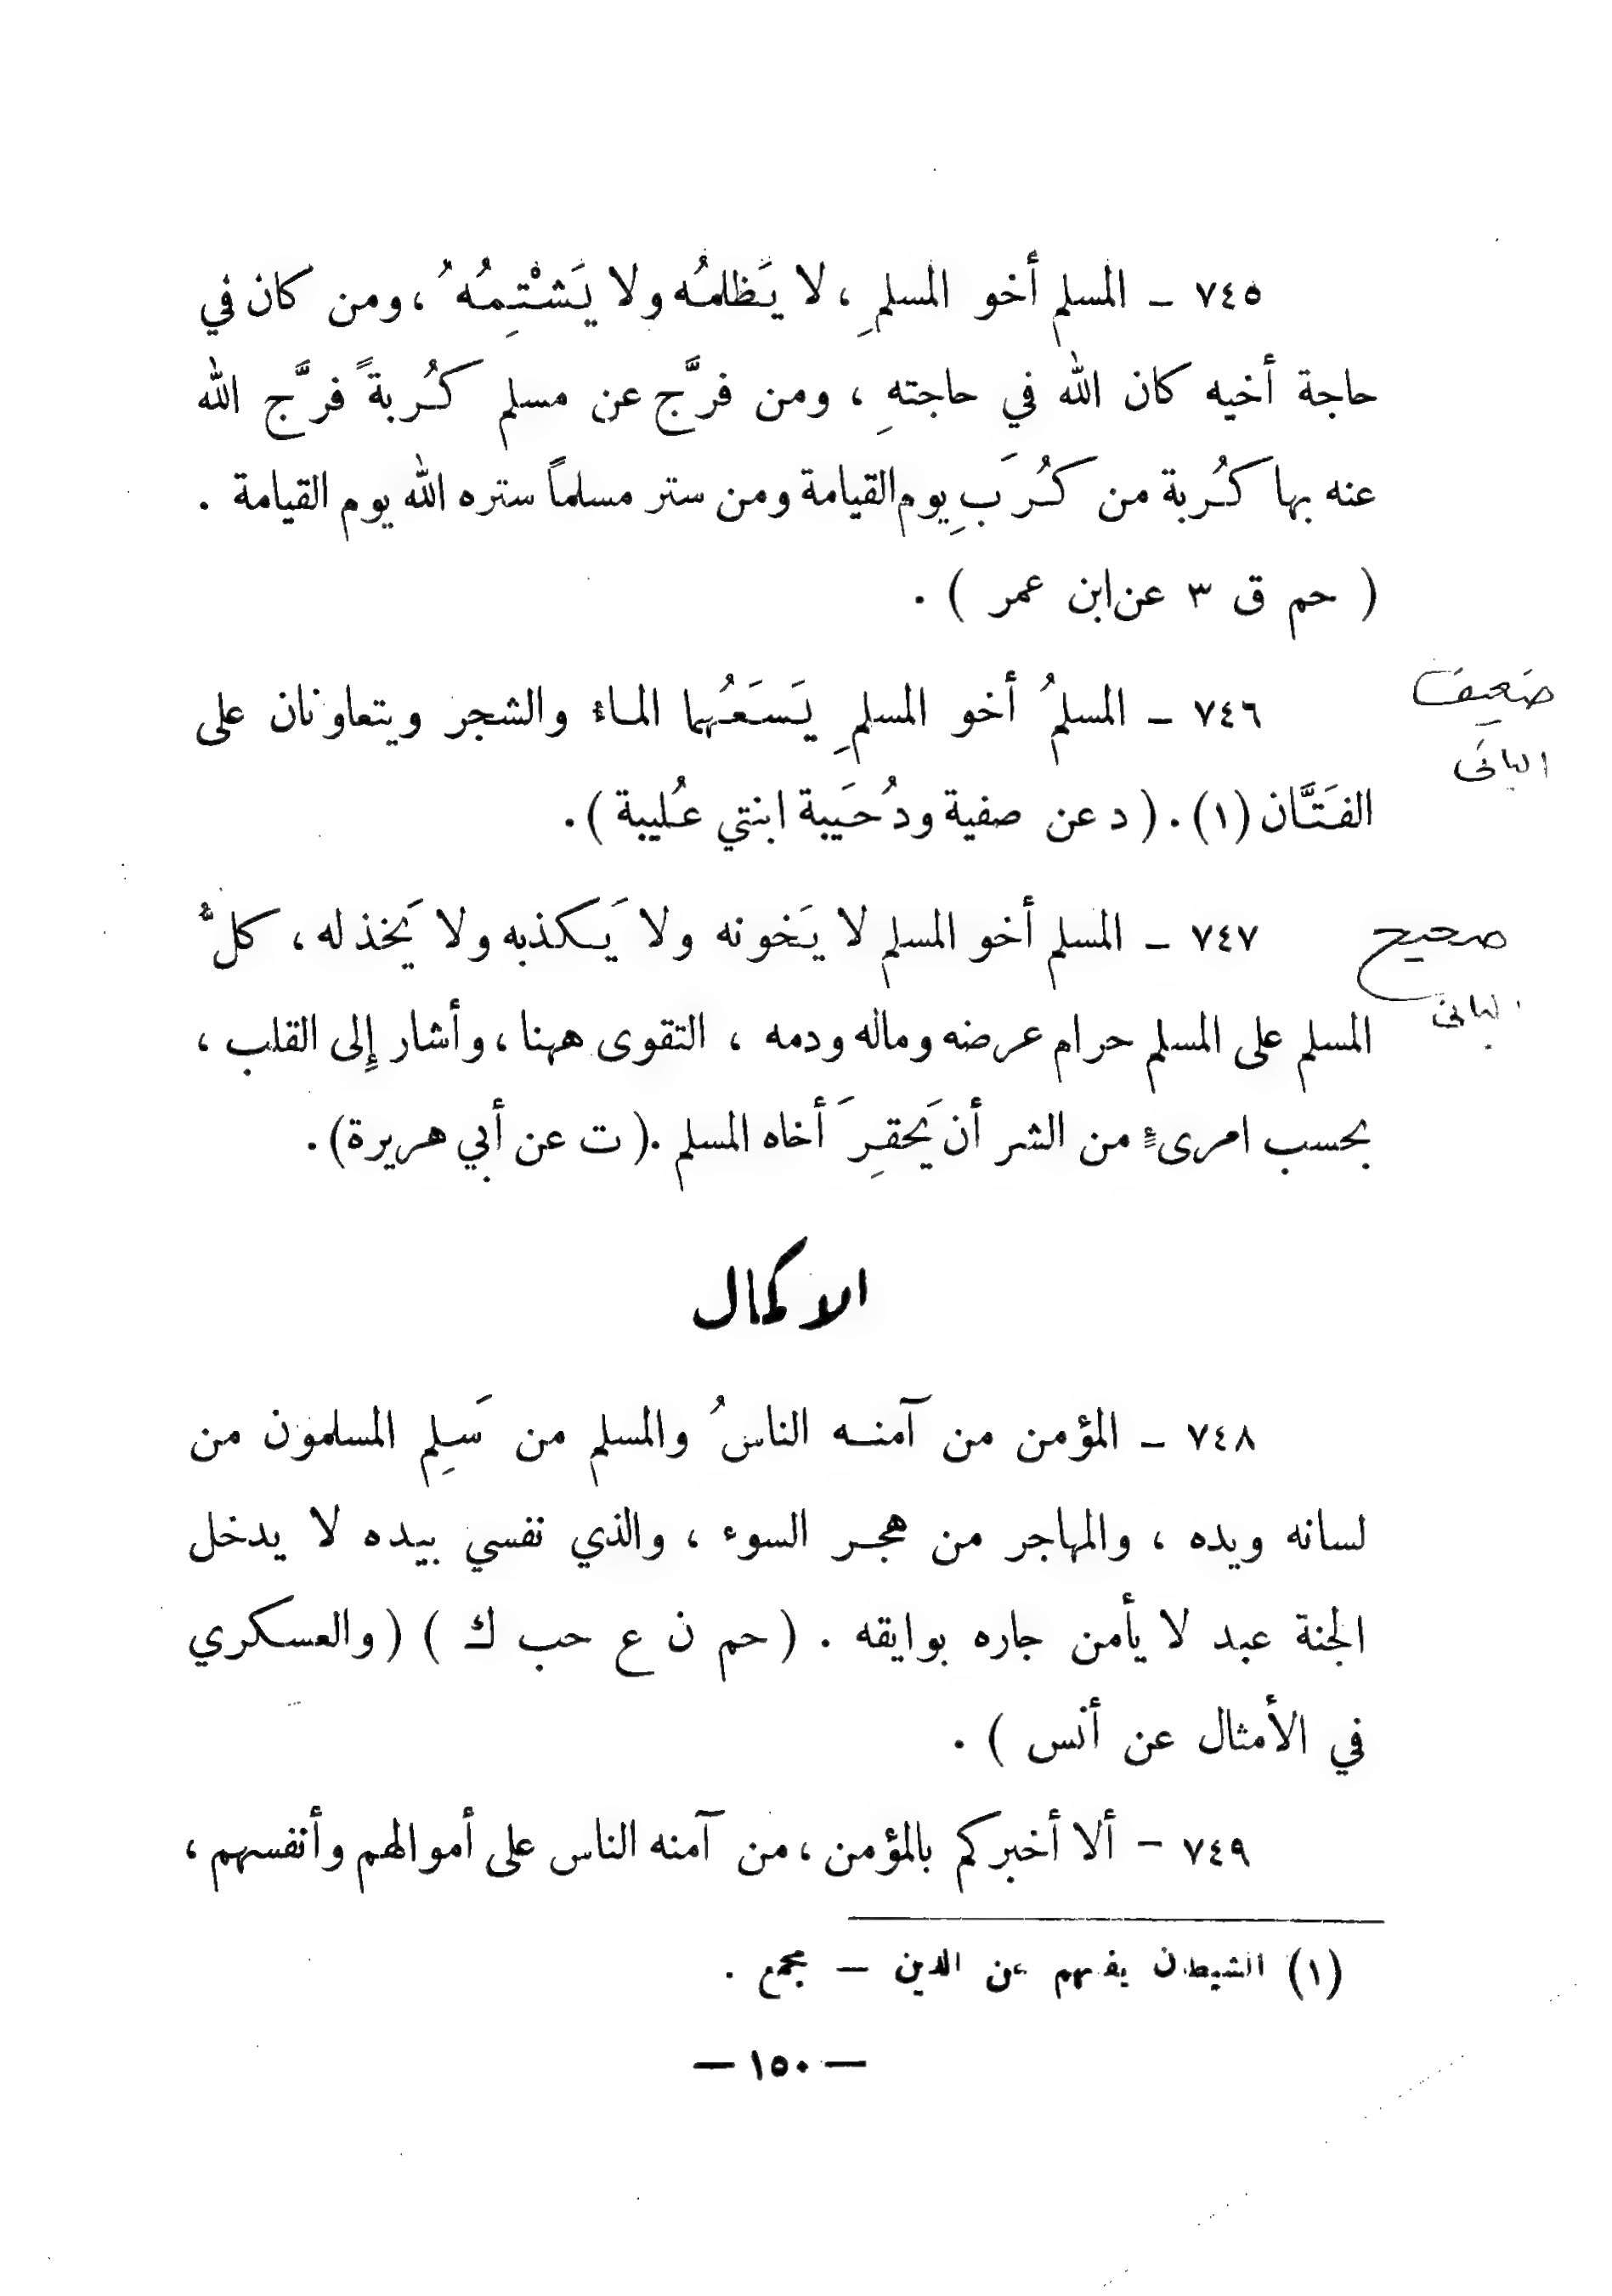 ٧٤٥ - المسلم أخو المسلمِ ، لا يَظلمُه ولا يَشْتِمُهُ ، ومن كان في
حاجة أخيه كان الله في حاجتهِ ، ومن فرَّج عن مسلم كُربةً فرَّج الله
عنه بها كُربة من كُرَبِ يوم القيامة ومن ستر مسلماً ستره الله يوم القيامة .
( حم ق ٣ عن ابن عمر ) .
٧٤٦ - المسلمُ أخو المسلمِ يَسَعُهما الماء والشجر ويتعاونان على
ضَعيف
الفَتَّان (١) . ( د عن صفية ودُحَيبة ابنتي عُليبة ) .
البانى
٧٤٧ - المسلم أخو المسلم لا يَخونه ولا يَكذبه ولا يَخذله ، كلُّ
صحيح
المسلم على المسلم حرام عرضه وماله ودمه ، التقوى ههنا ، وأشار إِلى القلب ،
البانى
بحسب امرىءٍ من الشر أن يَحقِرَ أخاه المسلم . ( ت عن أبي هريرة ) .
الاكمال
٧٤٨ - المؤمن من آمنه الناسُ والمسلم من سَلِم المسلمون من
لسانه ويده ، والمهاجر من هجر السوء ، والذي نفسي بيده لا يدخل
الجنة عبد لا يأمن جاره بوايقه . ( حم ن ع حب ك ) ( والعسكري
في الأمثال عن أنس ) .
٧٤٩ - ألا أخبركم بالمؤمن ، من آمنه الناس على أموالهم وأنفسهم ،
(١) الشيطان يفتنهم عن الدين - مجمع .
— ١٥٠ —